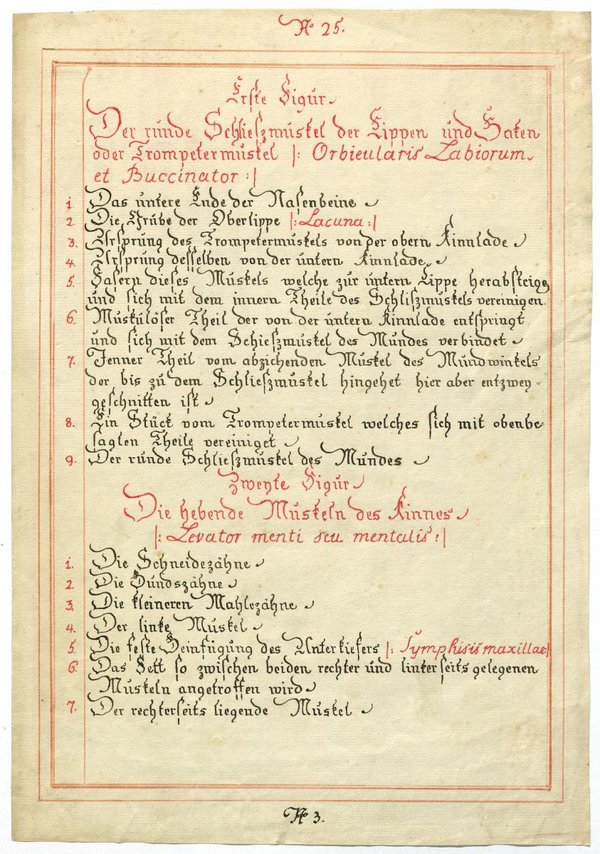 No 25.
Erste Figur
Der runde Schlieszmuskel der Lippen und Baken
oder Trompetermuskel |: Orbicularis Labiorum
et Buccinator :|
1. Das untere Ende der Nasenbeine
2. Die Grube der Oberlippe |: Lacuna :|
3. Ursprung des Trompetermuskels von der obern Kinnlade
4. Ursprung desselben von der untern Kinnlade
5. Fasern dieses Muskels welche zur untern Lippe herabsteige
und sich mit dem innern Theile des Schliszmuskels vereinigen
6. Muskulöser Theil der von der untern Kinnlade entspringt
und sich mit dem Schieszmuskel des Mundes verbindet
7. Jenner Theil vom abziehenden Muskel des Mundwinkels
der bis zu dem Schlieszmuskel hingehet hier aber entzwey-
geschnitten ist
8. Ein Stück vom Trompetermuskel welches sich mit obenbe-
sagten Theile vereiniget
9. Der runde Schlieszmuskel des Mundes
Zweyte Figur
Die hebende Muskeln des Kinnes
|: Levator menti seu mentalis :|
1. Die Schneidezähne
2. Die Hundszähne
3. Die kleineren Mahlezähne
4. Der linke Muskel
5. Die feste Beinfügung des Unterkiefers |: Symphisis maxillae
6. Das Fett so zwischen beiden rechter und linkerseits gelegenen
Muskeln angetroffen wird
7. Der rechterseits liegende Muskel
No 3.